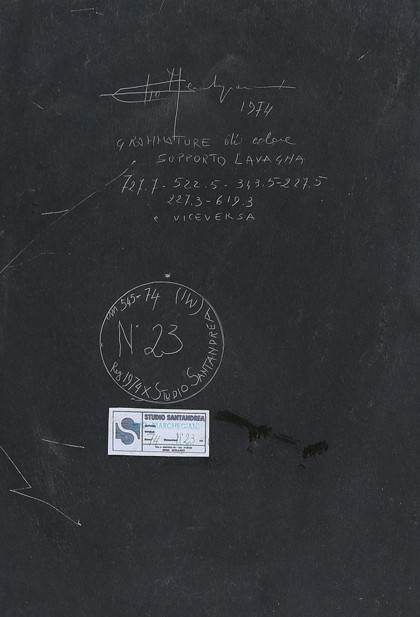 1974
GRAMMATURE di colore
SUPPORTO LAVAGNA
727.7 - 522.5 - 343.5 - 227.5
227.3 - 619.3
e VICEVERSA
545-74 (IW)
N° 23
Reg 1974 X STUDIO SANTANDREA
STUDIO SANTANDREA
MARCHEGIANI
74 N° 23